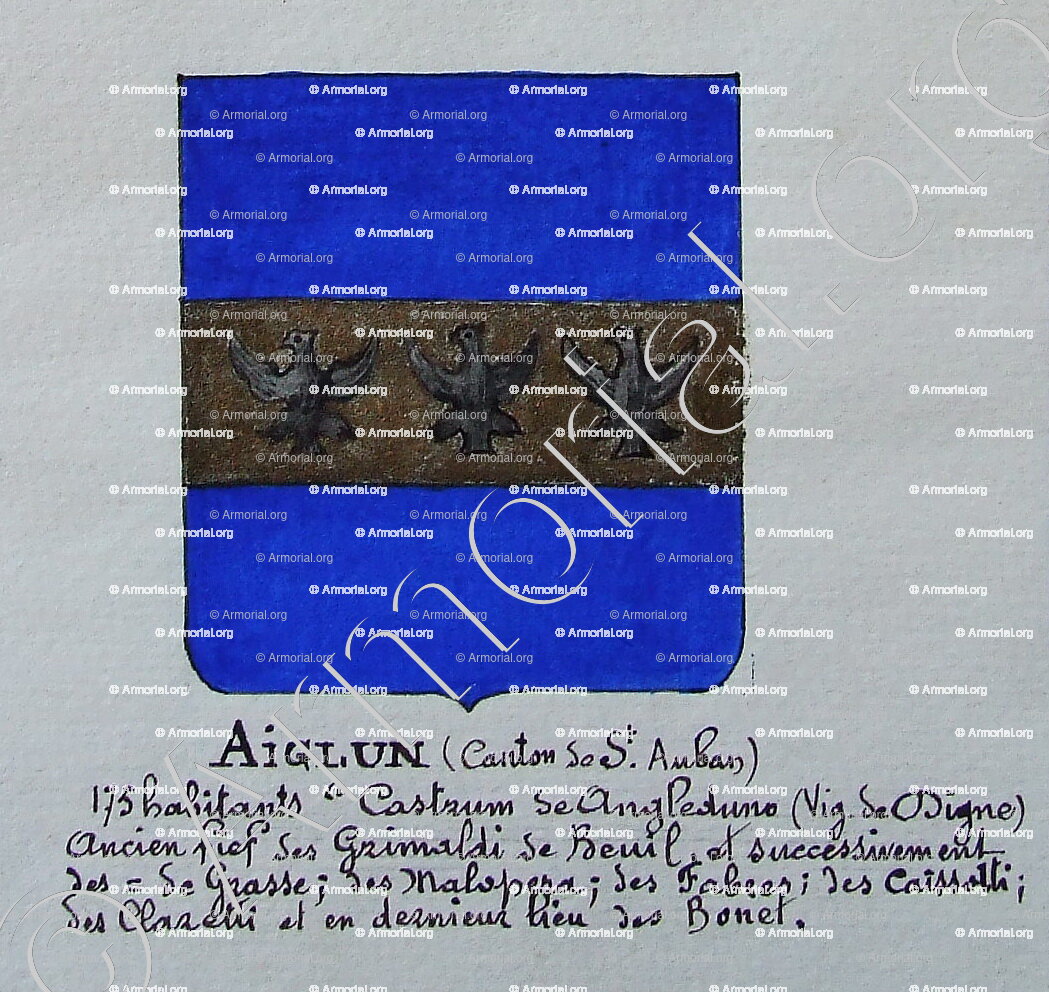 AIGLUN (Canton de St. Auban)
175 habitants - Castrum de Angleduno (Vig. de Digne)
Ancien fief des Grimaldi de Beuil, et successivement
des - de Grasse; des Malespera; des Fabres; des Caissotti;
des Claretti et en dernieur lieu des Bonet.
© Armorial.org